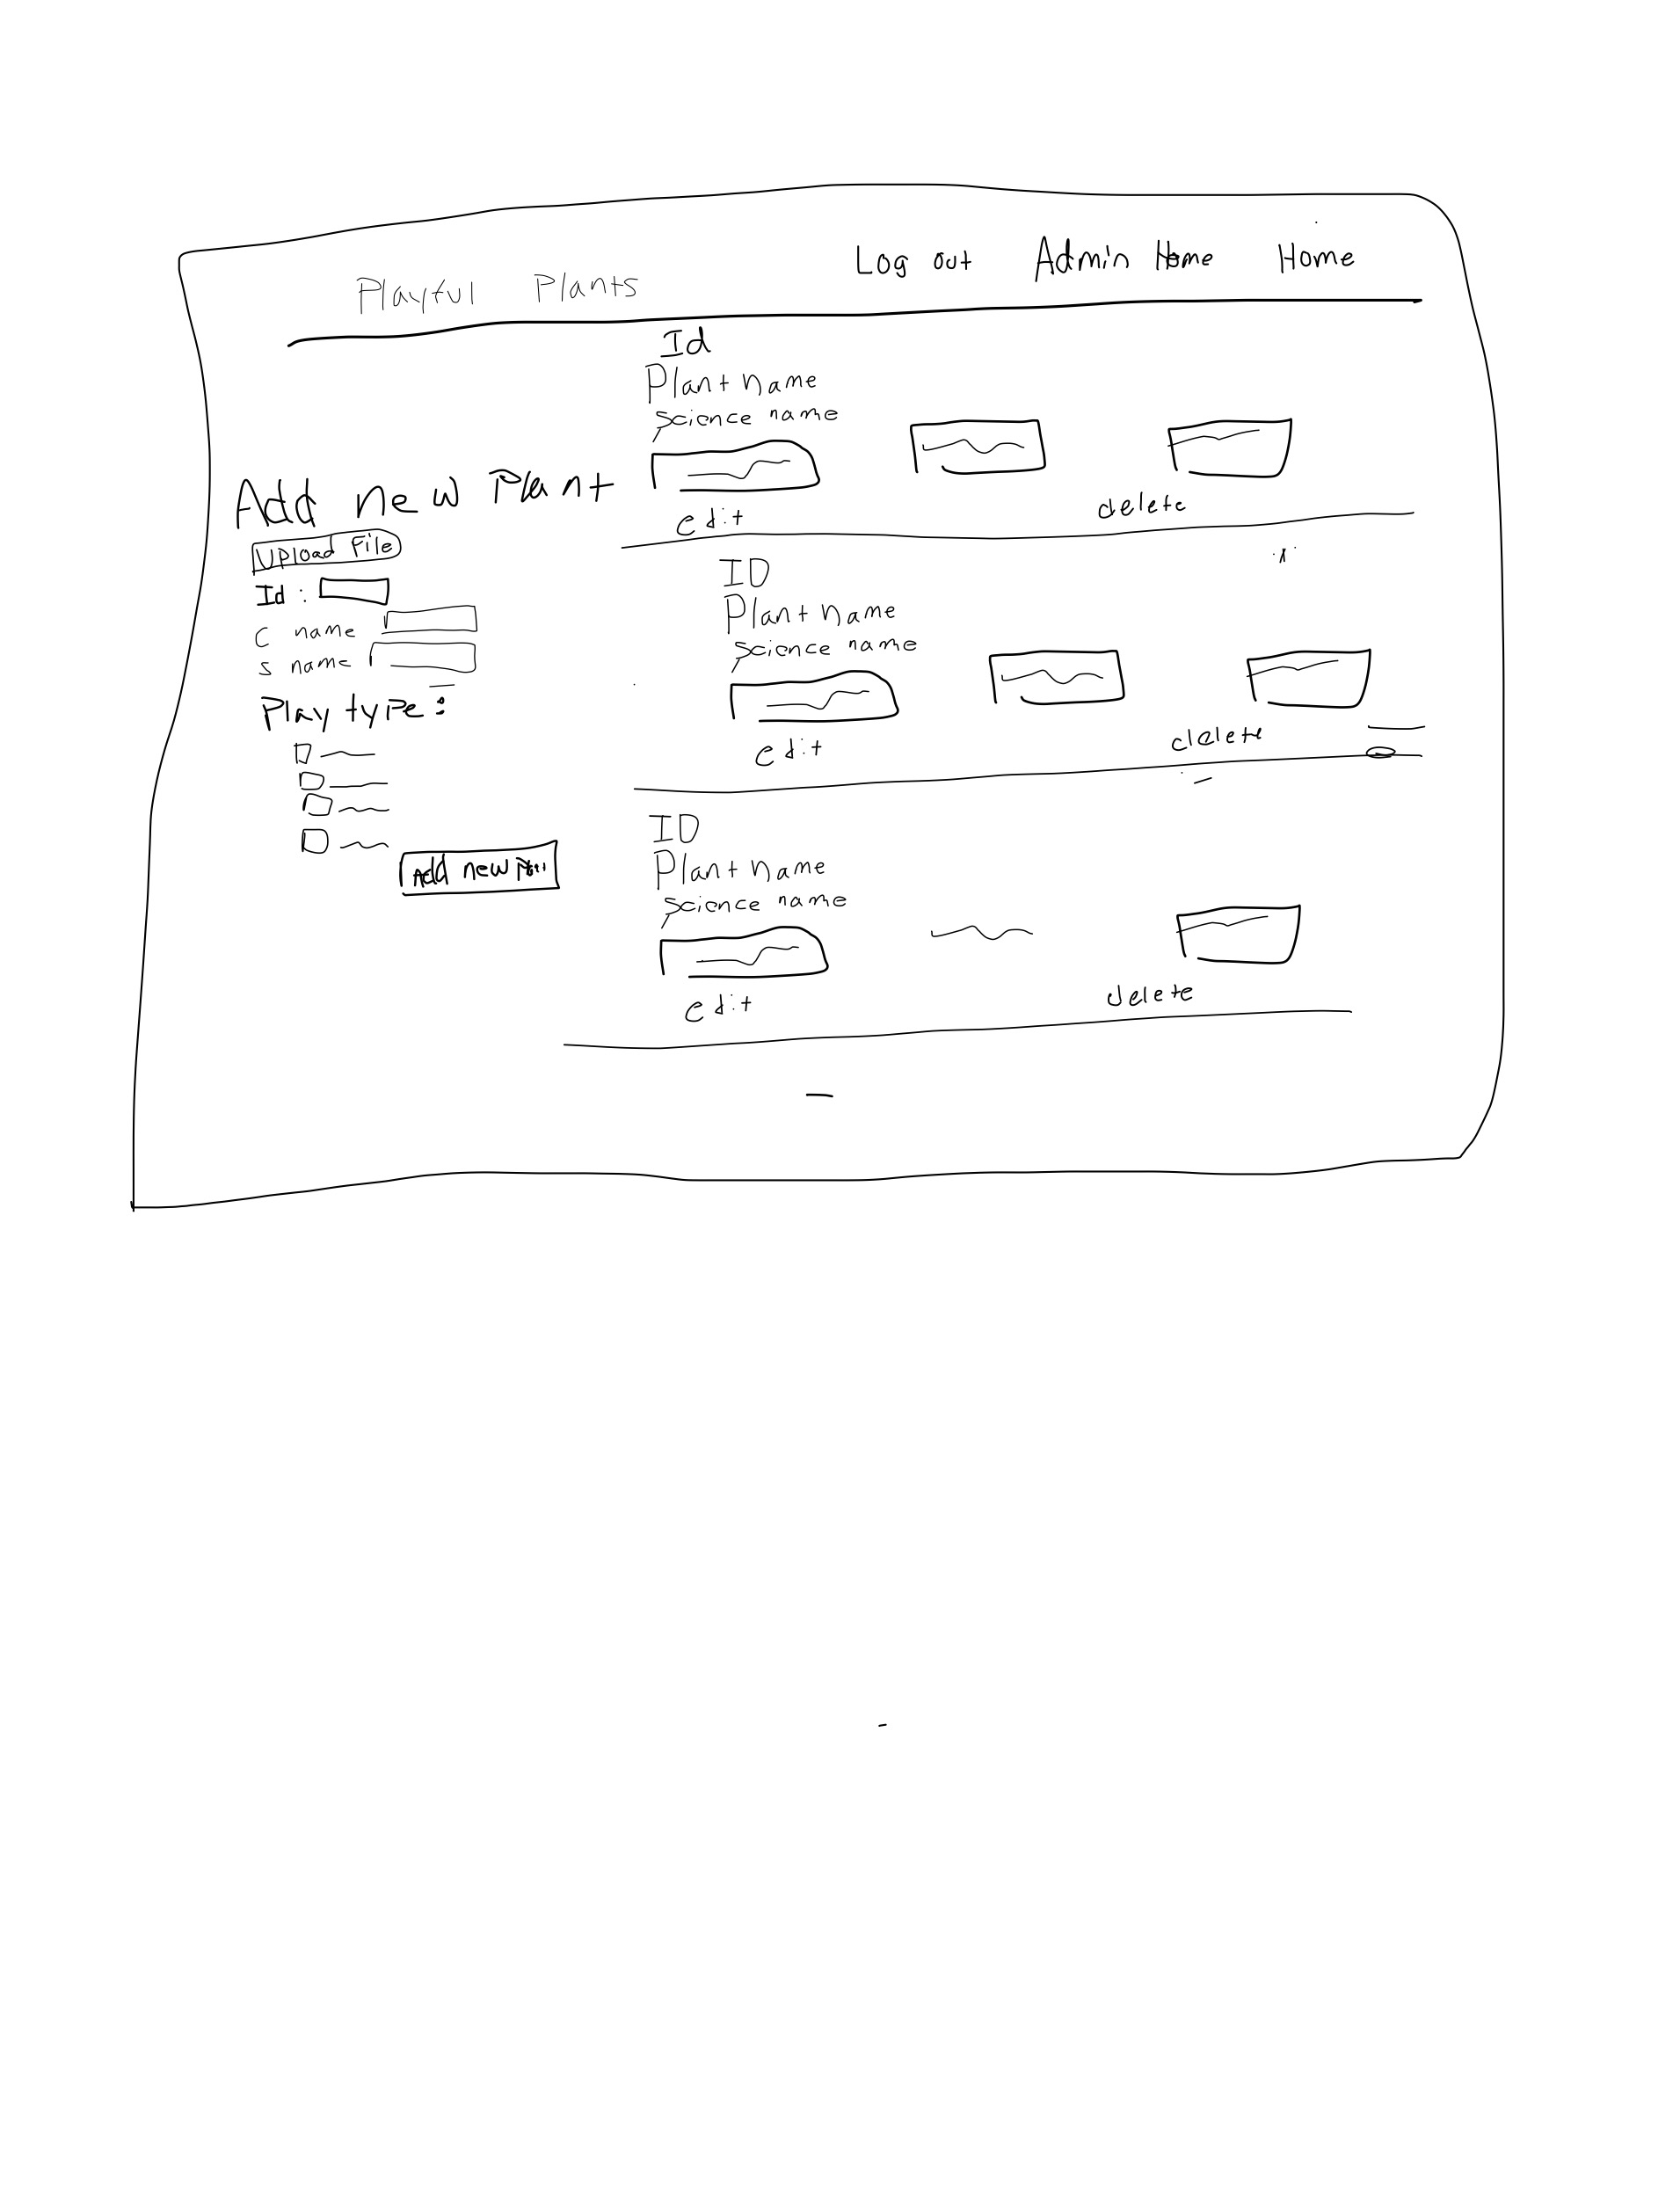 Playful Plants
Log out Admin Home Home
Add new Plant
Upload File
Id :
C name
S name
Play type :
Add new
Id
Plant name
Science name
edit delete
ID
Plant name
Science name
edit delete
ID
Plant name
Science name
edit delete